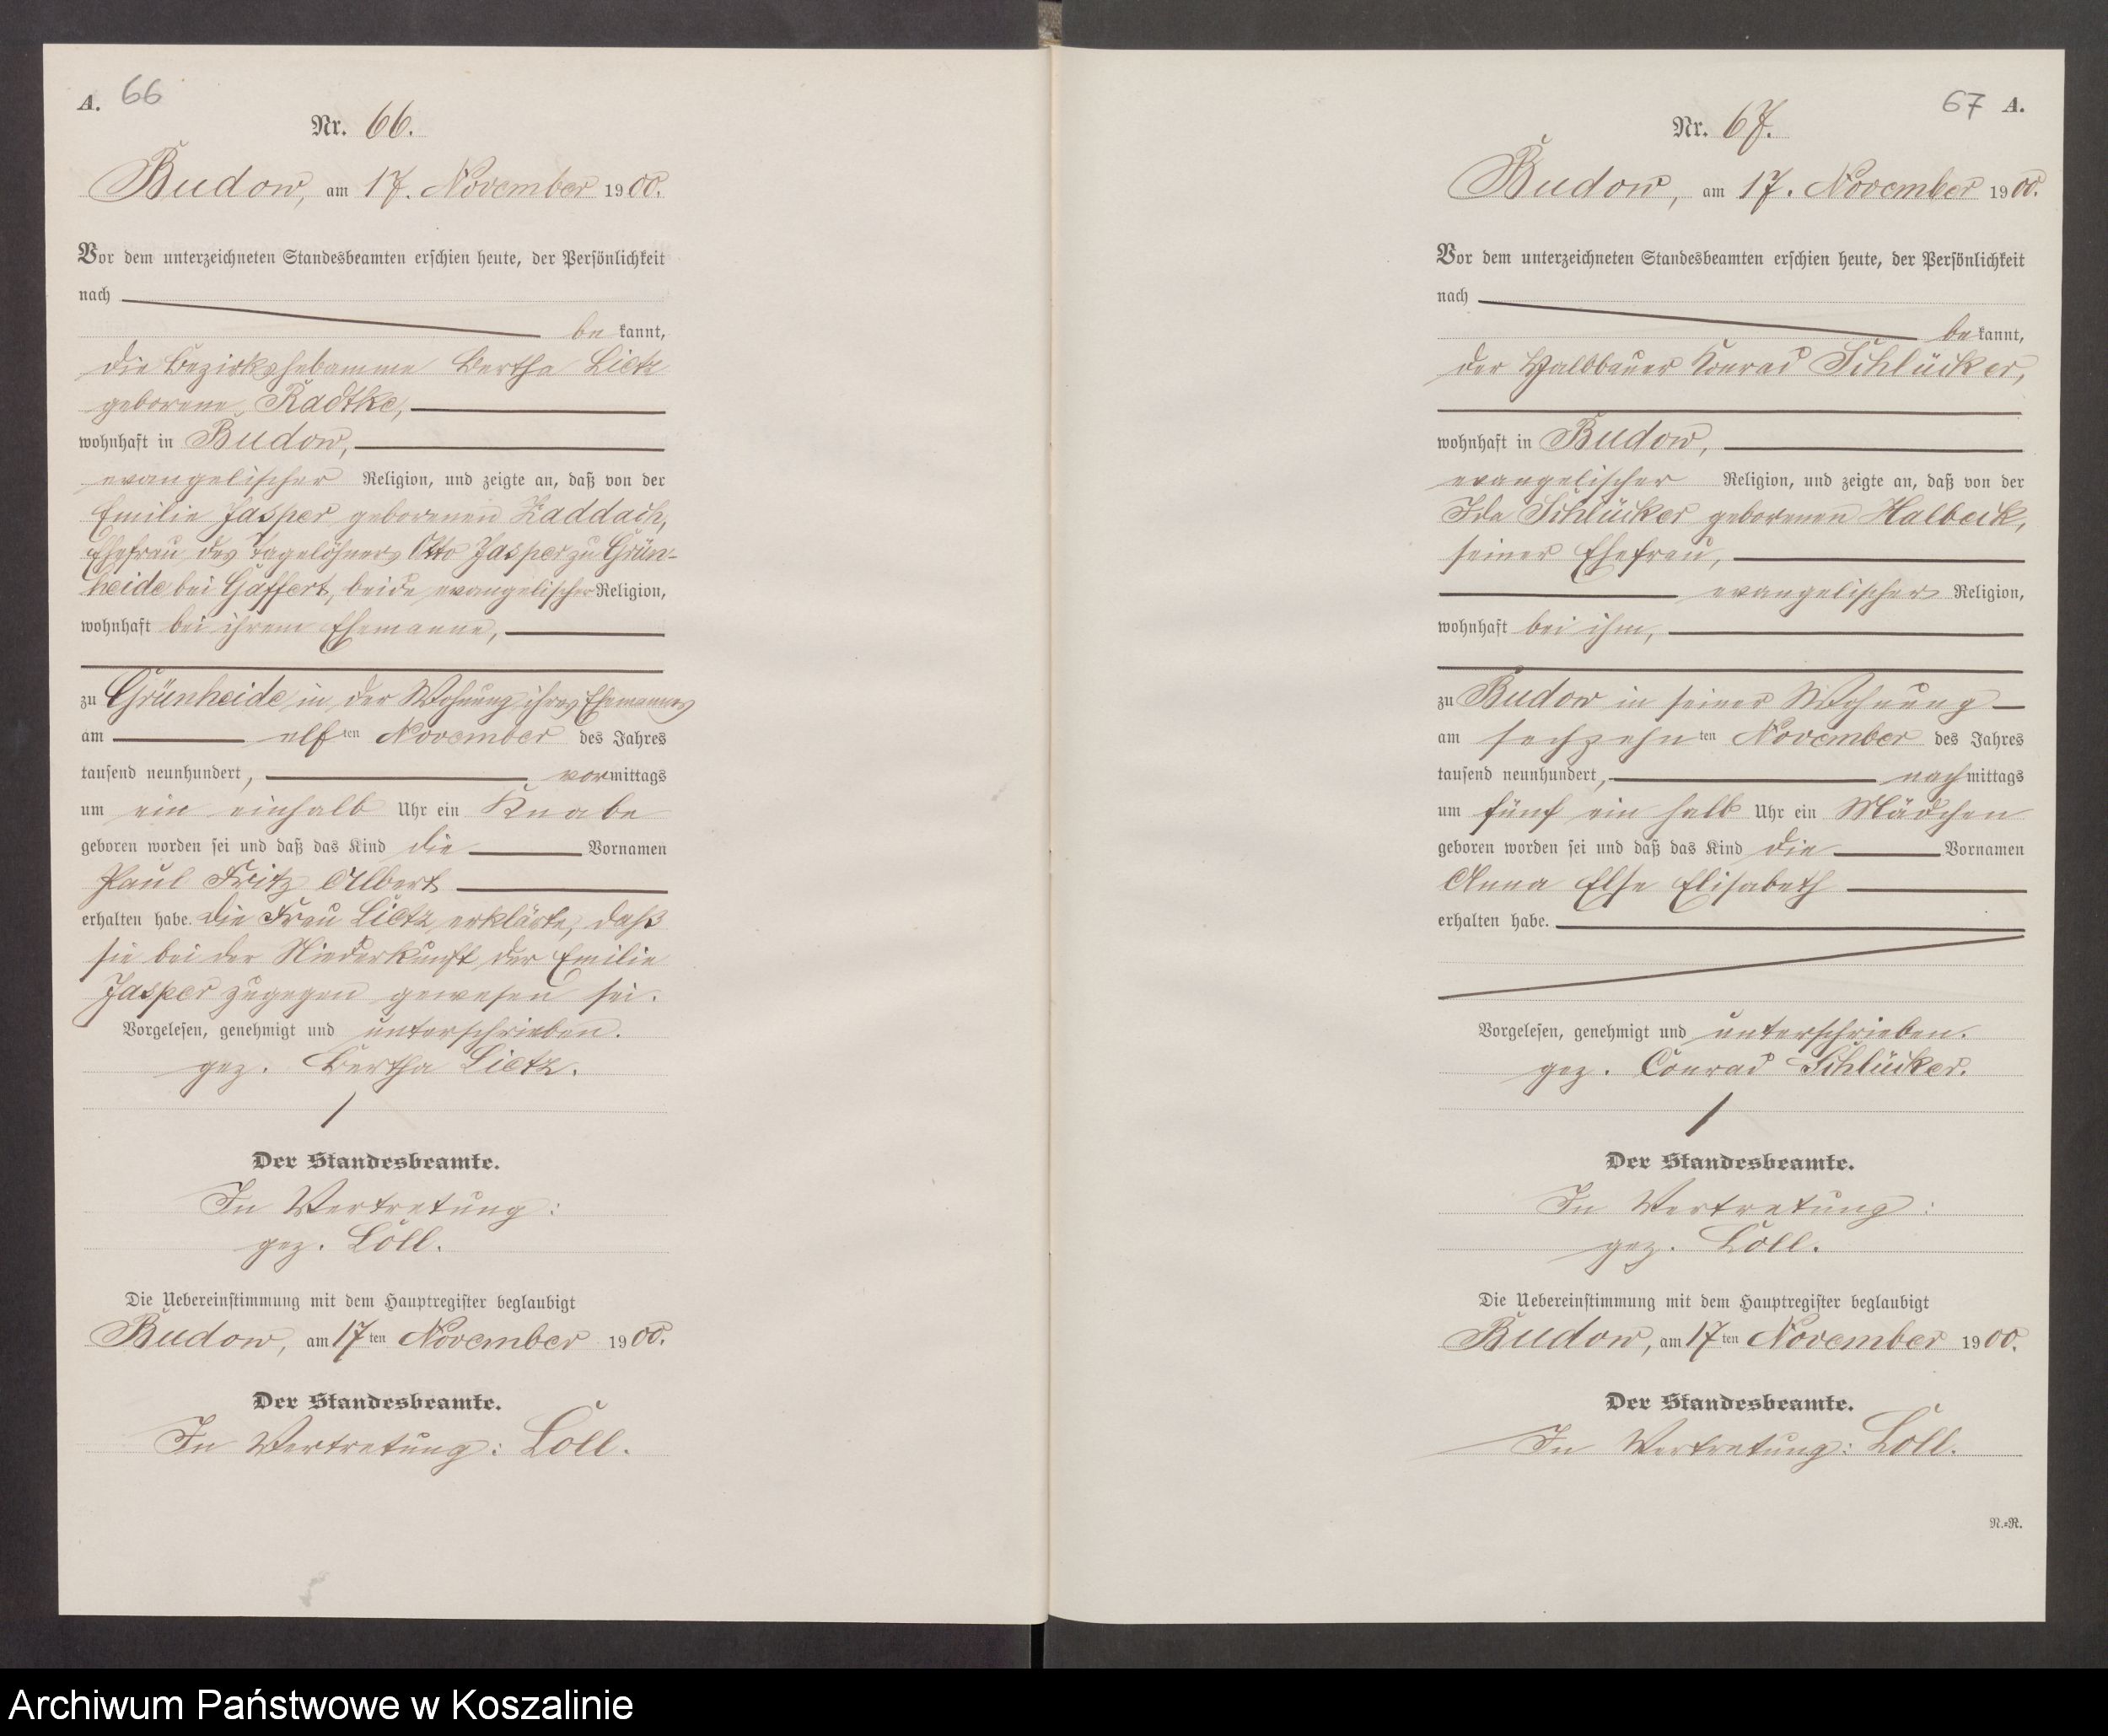 A. 66
Nr. 66.
Budow, am 17. November 1900.
Vor dem unterzeichneten Standesbeamten erschien heute, der Persönlichkeit
nach
be kannt,
die Bezirkshebamme Bertha Lietz
geborene Radtke,
wohnhaft in Budow,
evangelischer Religion, und zeigte an, daß von der
Emilie Jasper geborenen Kaddach,
Ehefrau des Tagelöhners Otto Jasper zu Grün-
heide bei Gaffert, beide evangelischer Religion,
wohnhaft bei ihrem Ehemanne,
zu Grünheide in der Wohnung ihres Ehemannes
am elf ten November des Jahres
tausend neunhundert, vormittags
um ein einhalb Uhr ein Knabe
geboren worden sei und daß das Kind die Vornamen
Paul Fritz Albert
erhalten habe. Die Frau Lietz erklärte, daß
sie bei der Niederkunft der Emilie
Jasper zugegen gewesen sei.
Vorgelesen, genehmigt und unterschrieben.
gez. Bertha Lietz.
Der Standesbeamte.
In Vertretung:
gez. Löll.
Die Uebereinstimmung mit dem Hauptregister beglaubigt
Budow, am 17 ten November 1900.
Der Standesbeamte.
In Vertretung: Löll.
67 A.
Nr. 67.
Budow, am 17. November 1900.
Vor dem unterzeichneten Standesbeamten erschien heute, der Persönlichkeit
nach
be kannt,
der Halbbauer Konrad Schlücker,
wohnhaft in Budow,
evangelischer Religion, und zeigte an, daß von der
Ida Schlücker geborenen Halbeck,
seiner Ehefrau,
evangelischer Religion,
wohnhaft bei ihm,
zu Budow in seiner Wohnung
am sechzehn ten November des Jahres
tausend neunhundert, nachmittags
um fünf ein halb Uhr ein Mädchen
geboren worden sei und daß das Kind die Vornamen
Anna Else Elisabeth
erhalten habe.
Vorgelesen, genehmigt und unterschrieben.
gez. Conrad Schlücker.
Der Standesbeamte.
In Vertretung:
gez. Löll.
Die Uebereinstimmung mit dem Hauptregister beglaubigt
Budow, am 17 ten November 1900.
Der Standesbeamte.
In Vertretung: Löll.
N.=R.
Archiwum Państwowe w Koszalinie